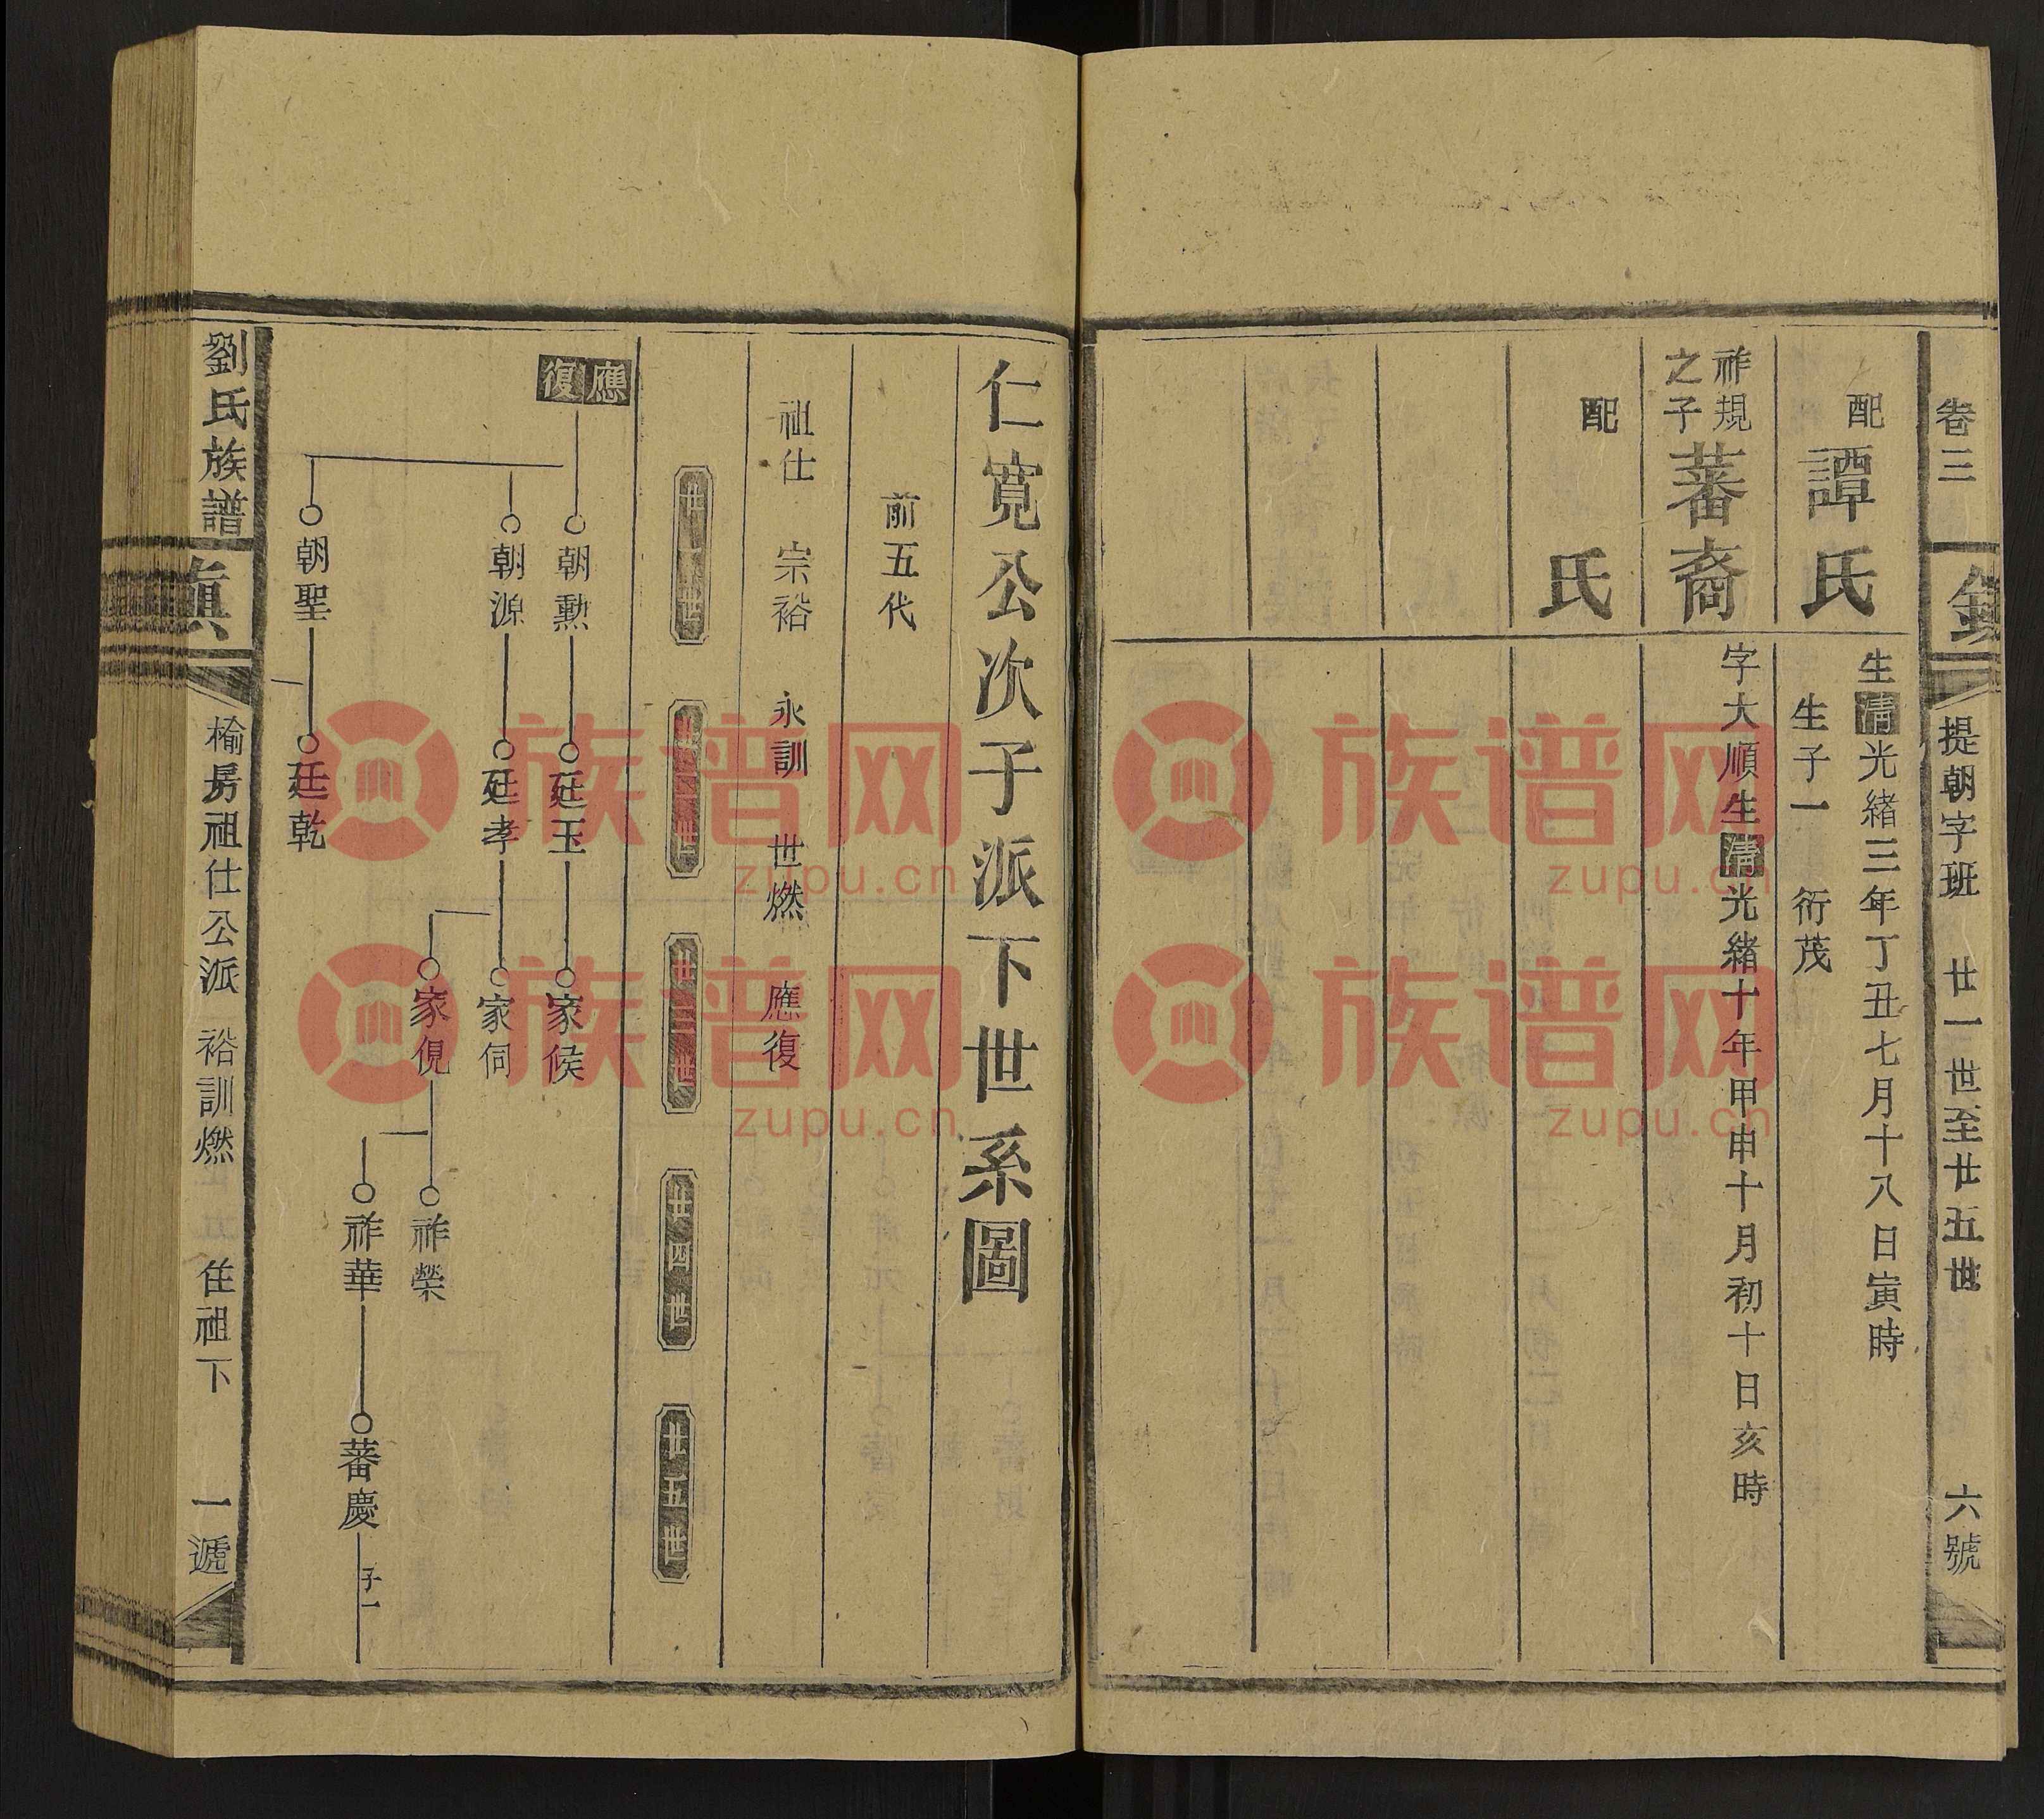 卷三
提朝字班
廿一世至廿五世
六號
配譚氏
生清光緒三年丁丑七月十八日寅時
生子一 衍茂
祚規之子蕃裔
字大順生清光緒十年甲申十月初十日亥時
配 氏
仁寬公次子派下世系圖
前五代
祖仕 宗裕 永訓 世燃 應復
廿一世 廿二世 廿三世 廿四世 廿五世
應復
朝勲 廷玉 家侯
朝源 廷孝 家伺
家俔 祚榮
祚華 蕃慶 子一
朝聖 廷乾
劉氏族譜
楡房祖仕公派 裕訓燃 住祖下 一遞
族谱网
zupu.cn
族谱网
zupu.cn
族谱网
zupu.cn
族谱网
zupu.cn